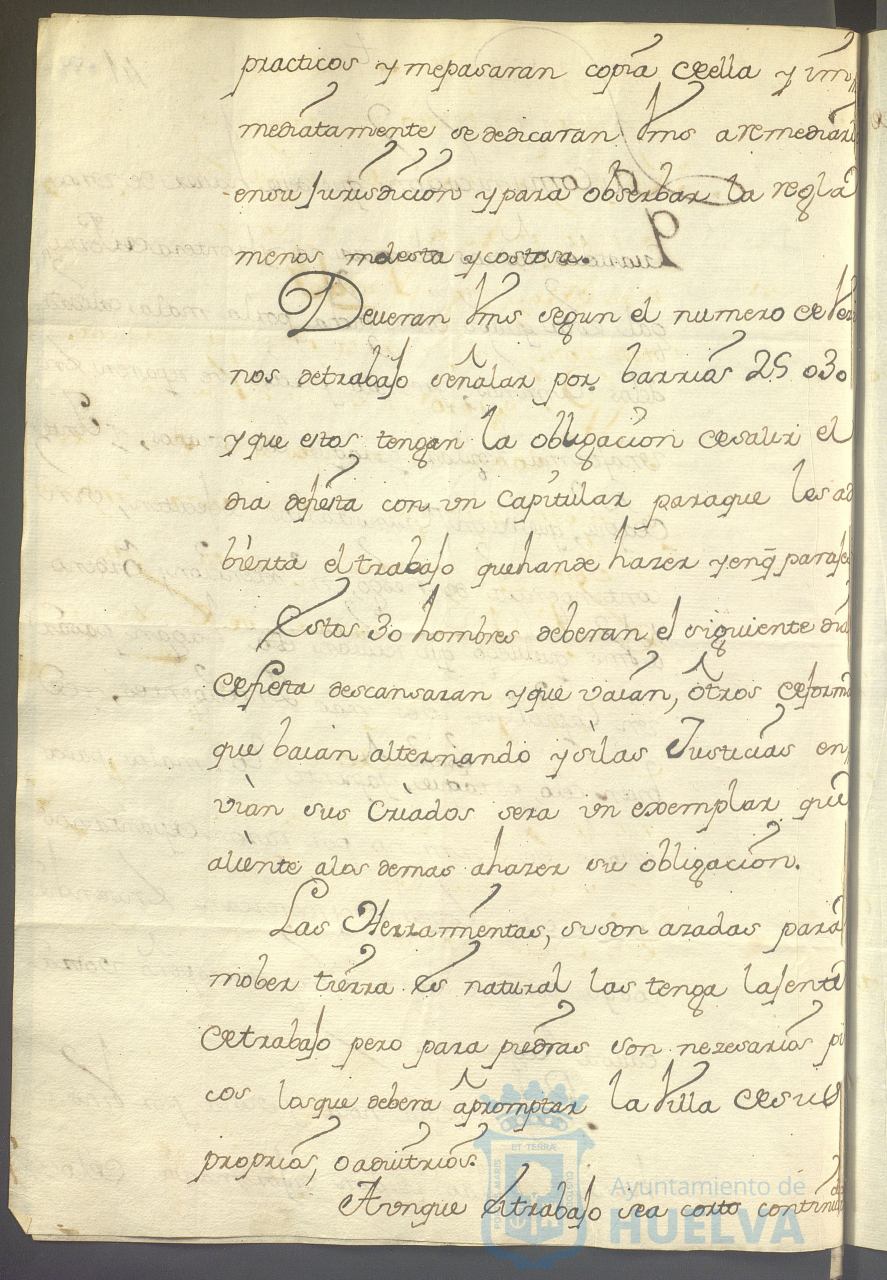 practicos y mepasaran copia deella y imm
mediatamente sededicaran Vms aremediar
ensu Jurisdicion y para obserbar la regla
menos molesta y costosa.
Deveran Vms segun el numero de Veci
nos detrabajo señalar por barrios 25 o30
yque estos tengan la obligacion desalir el
dia defiesta con un Capitular paraque les ad
bierta el trabajo quehande hazer yenq̃ paraje
Estos 30 hombres deberan el siguiente dia
defiesta descansaran yque vaian, otros deforma
que baian alternando ysilas Justicias en
vian sus Criados sera un exemplar que
aliente alos demas ahazer su obligacion.
Las Herramientas, suson azadas para
mober tierra es natural las tenga lajente
detrabajo pero para piedras son nezesarios pi
cos losque debera apromptar la Villa desus
proprios, oadvitrios.
Aunque eltrabajo sea corto continua
do
q
ET TERRÆ
Ayuntamiento de
HUELVA